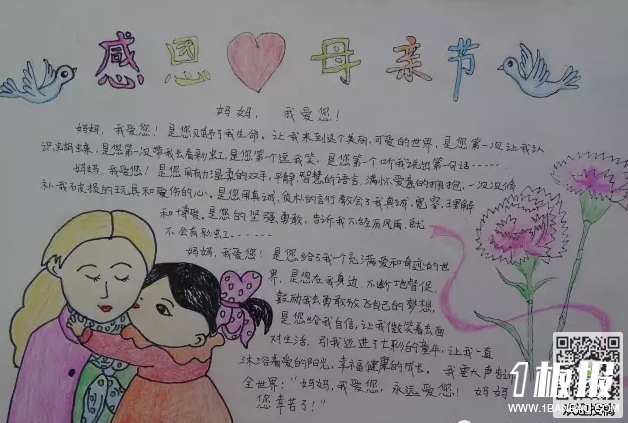 感恩 母亲节
妈妈，我爱您！
妈妈，我爱您！是您赐予了我生命。让我来到这个美丽，可爱的世界，是您第一次让我认
识出蝴蝶，是您第一次带我去看彩虹，是您第一个逗我笑，是您第一个听我说出第一句话……
妈妈，我爱您！是您用有力温柔的双手，平静，智慧的语言，满怀爱意的拥抱，一次次修
补我破损的玩具和受伤的心。是您用真诚，质朴的言行教会了我真诚，宽容，理解
和博爱。是您的坚强勇敢，告诉我不经历风雨，就
不会有彩虹……
妈妈，我爱您！是您给了我一个充满爱和奇迹的世
界，是您在我身边，不断地督促，
鼓励我去勇敢放飞自己的梦想，
是您给我自信，让我微笑着去面
对生活，引我迈进了七彩的童年，让我一直
沐浴着爱的阳光，幸福健康的成长。我要大声告诉
全世界：“妈妈，我爱您，永远爱您！妈妈
您辛苦了！”
板报
WWW.1BANBAO.COM
欢迎投稿